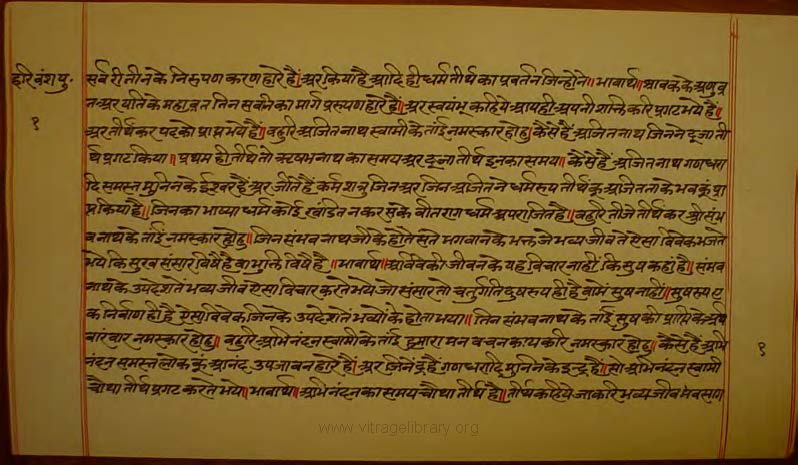 हरिवंश पु॰
१
सर्व रीतीनके निरूपण करणहारे हैं॥ अर किया है आदि ही धर्म तीर्थ का प्रवर्तन जिन्होने॥ भावार्थ॥ श्रावकके अणुव्र
त अर यति के महाव्रत तिन सबनिका मार्ग प्ररूपणहारे हैं॥ अर स्वयंभू कहिये आपही अपनी शक्ति करि प्रगट भये हैं॥
अर तीर्थंकर पदको प्राप्त भये हैं॥ बहुरि अजितनाथ स्वामी के ताईं नमस्कार होहु॥ कैसे हैं अजितनाथ जिनने दूजा ती
र्थ प्रगट किया॥ प्रथम ही तीर्थ तो ऋषभनाथ का समय अर दूजा तीर्थ इनका समय॥ कैसे हैं अजितनाथ गणधरा
दि समस्त मुनिनके ईश्वर हैं अर जीते हैं कर्म शत्रु जिन अर जिन अजितने धर्मरूप तीर्थ कूं अजितता के भाव कूं प्रा
प्त किया है॥ जिनका भाष्या धर्म कोई खंडित न कर सके वीतराग धर्म अपराजित है॥ बहुरि तीजे तीर्थंकर श्री संभ
वनाथ के ताईं नमस्कार होहु॥ जिन संभवनाथजी के होते संते भगवान के भक्त जे भव्यजीव ते ऐसा विवेक भजते
भये कि सुख संसार विषै है वा मुक्ति विषै है॥ भावार्थ॥ अविवेकी जीवनके यह विचार नाहीं कि सुष कहां है॥ संभव
नाथ के उपदेशतें भव्यजीव ऐसा विचार करते भये जो संसार तो चतुर्गति दुषरूप ही है वामें सुष नाहीं॥ सुषरूप ए
क निर्वाण ही है ऐसा विवेक जिनके उपदेशतें भव्यों के होता भया॥ तिन संभवनाथ के ताईं सुष की प्राप्ति के अर्थि
बारंबार नमस्कार होहु॥ बहुरि अभिनंदन स्वामी के ताईं हमारा मन वचन काय करि नमस्कार होहु॥ कैसे हैं अभि
नंदन समस्त लोक कूं आनंद उपजावनहारे हैं॥ अर जिनेंद्र हैं गणधरादि मुनिनके इन्द्र हैं॥ सो अभिनंदन स्वामी
चौथा तीर्थ प्रगट करते भये॥ भावार्थ॥ अभिनंदन का समय चौथा तीर्थ है॥ तीर्थ कहिये जाकरि भव्यजीव भवसाग
१
www.vitragelibrary.org